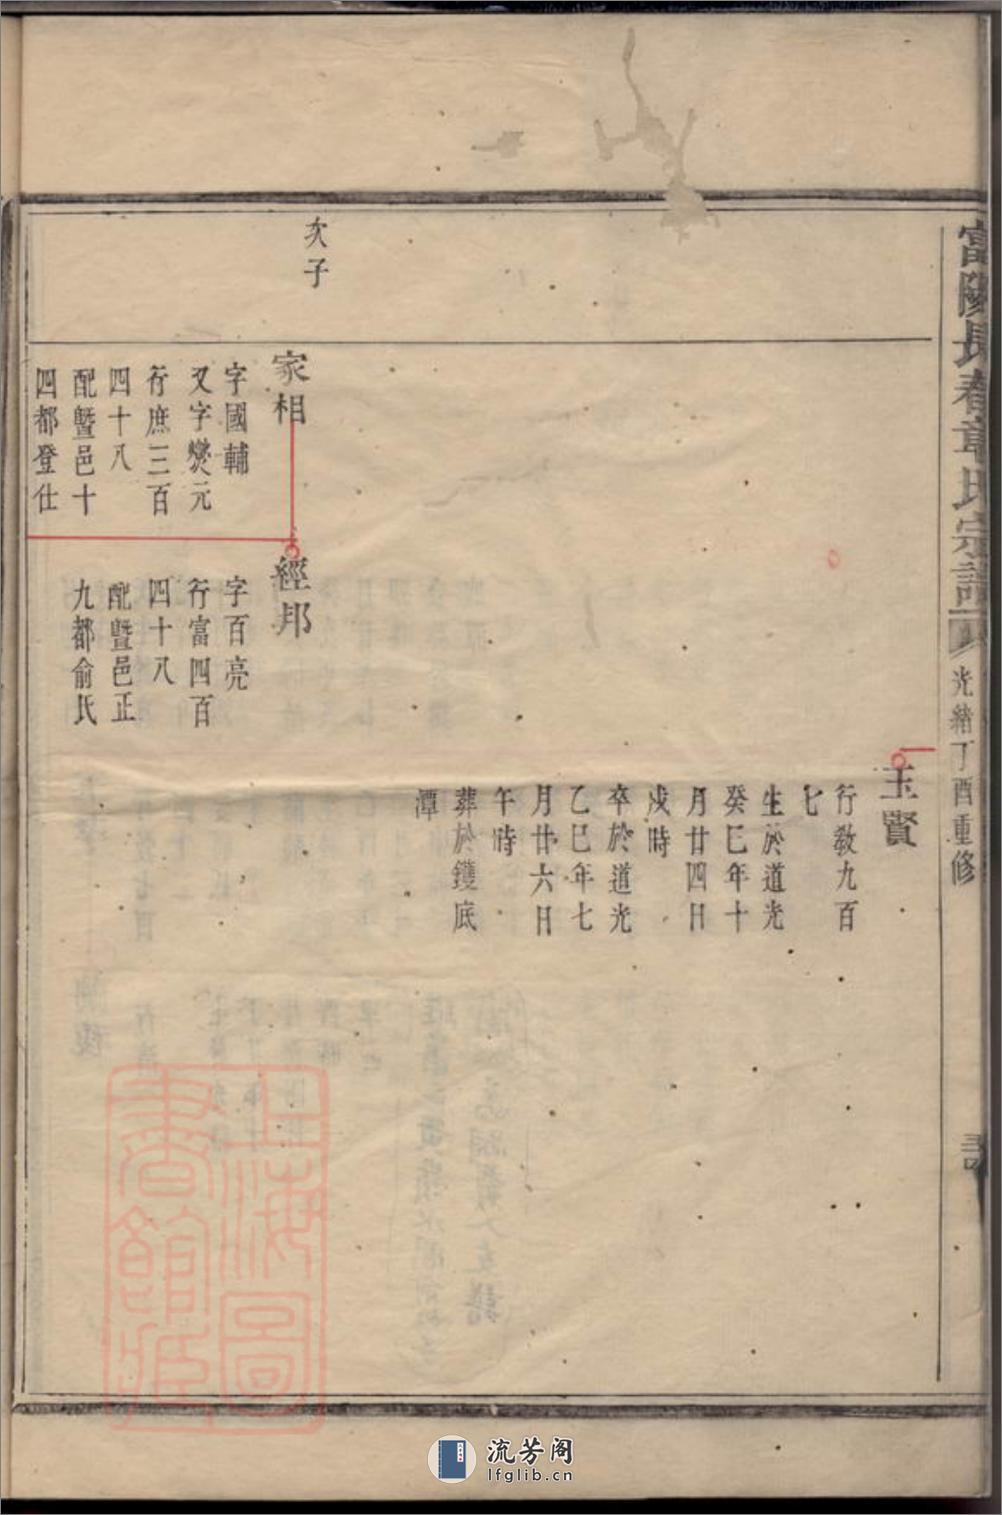 富陽長春章氏宗譜
光緒丁酉重修
玉賢
行教九百
七
生於道光
癸巳年十
月廿四日
戌時
卒於道光
乙巳年七
月廿六日
午時
葬於鑊底
潭
次子
家相
字國輔
又字爕元
行庶三百
四十八
配暨邑十
四都登仕
經邦
字百亮
行富四百
四十八
配暨邑正
九都俞氏
上海圖
書館藏
流芳阁
lfglib.cn